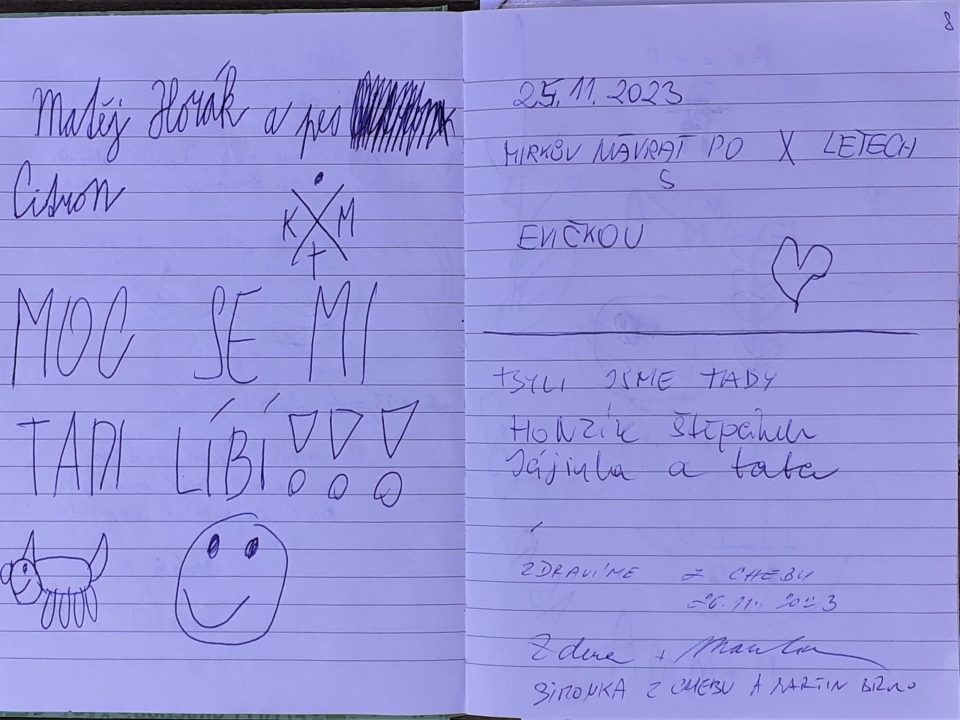 Matěj Horák a pes
Citron
K M
MOC SE MI
TADI LÍBÍ!!!
8
25.11.2023
MIRKŮV NÁVRAT PO X LETECH
S
EVIČKOU
BYLI JSME TADY
HONZÍK Štěpánek
Jájinka a tata
ZDRAVÍME Z CHEBU
26.11.2023
Zdena +
SIMONKA Z CHEBU A MARTIN BRNO